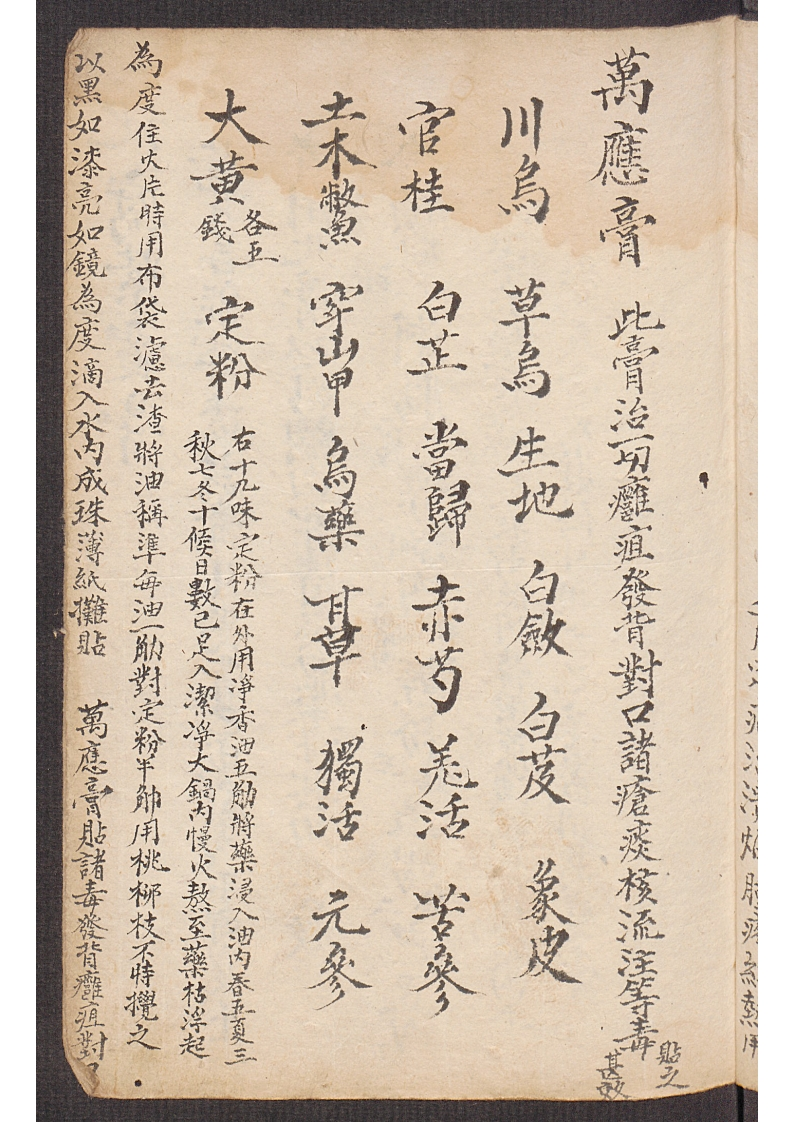 萬應膏 此膏治一切癰疽發背對口諸瘡痰核流注等毒貼之甚效
川烏 草烏 生地 白斂 白芨 象皮
官桂 白芷 當歸 赤芍 羌活 苦參
土木鱉 穿山甲 烏藥 甘草 獨活 元參
大黄各五錢 定粉
右十九味定粉在外用淨香油五觔將藥浸入油內春五夏三
秋七冬十候日數已足入潔淨大鍋內慢火熬至藥枯浮起
為度住火片時用布袋濾去渣將油稱準每油一觔對定粉半觔用桃柳枝不時攪之
以黑如漆亮如鏡為度滴入水內成珠薄紙攤貼 萬應膏貼諸毒發背癰疽對口